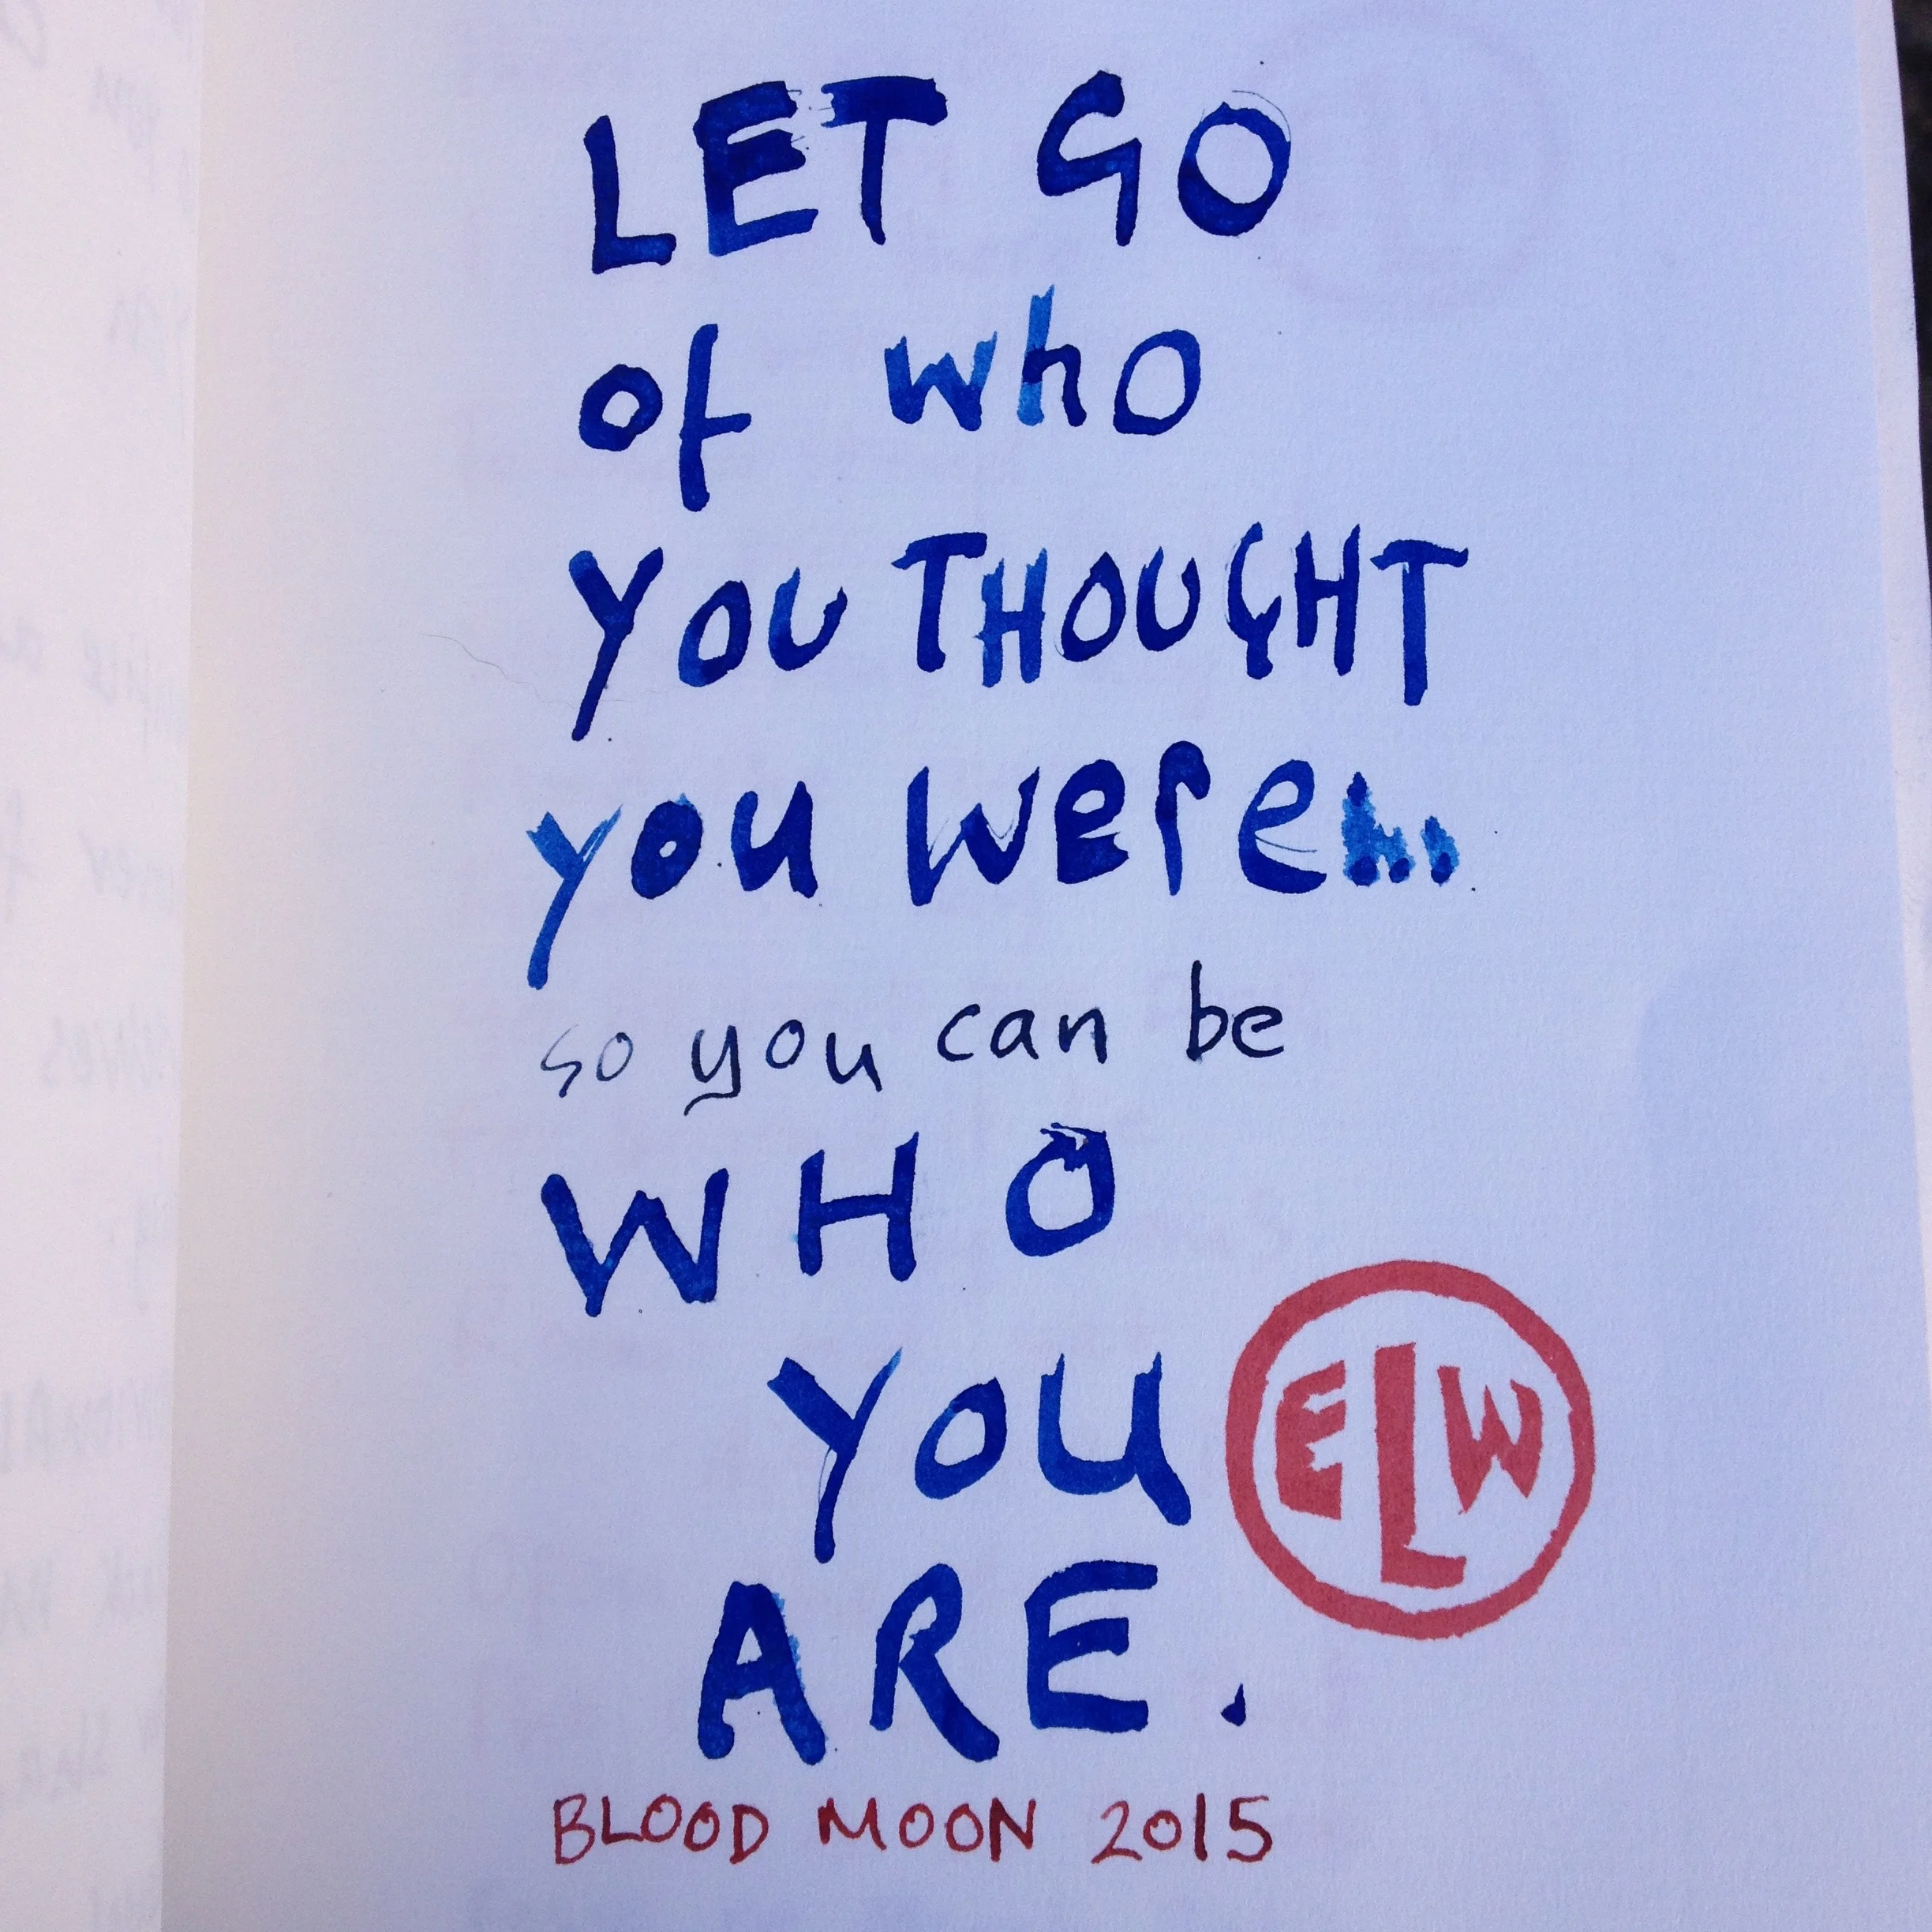 LET GO
of who
YOU THOUGHT
you were...
so you can be
WHO
YOU
ELW
ARE.
BLOOD MOON 2015